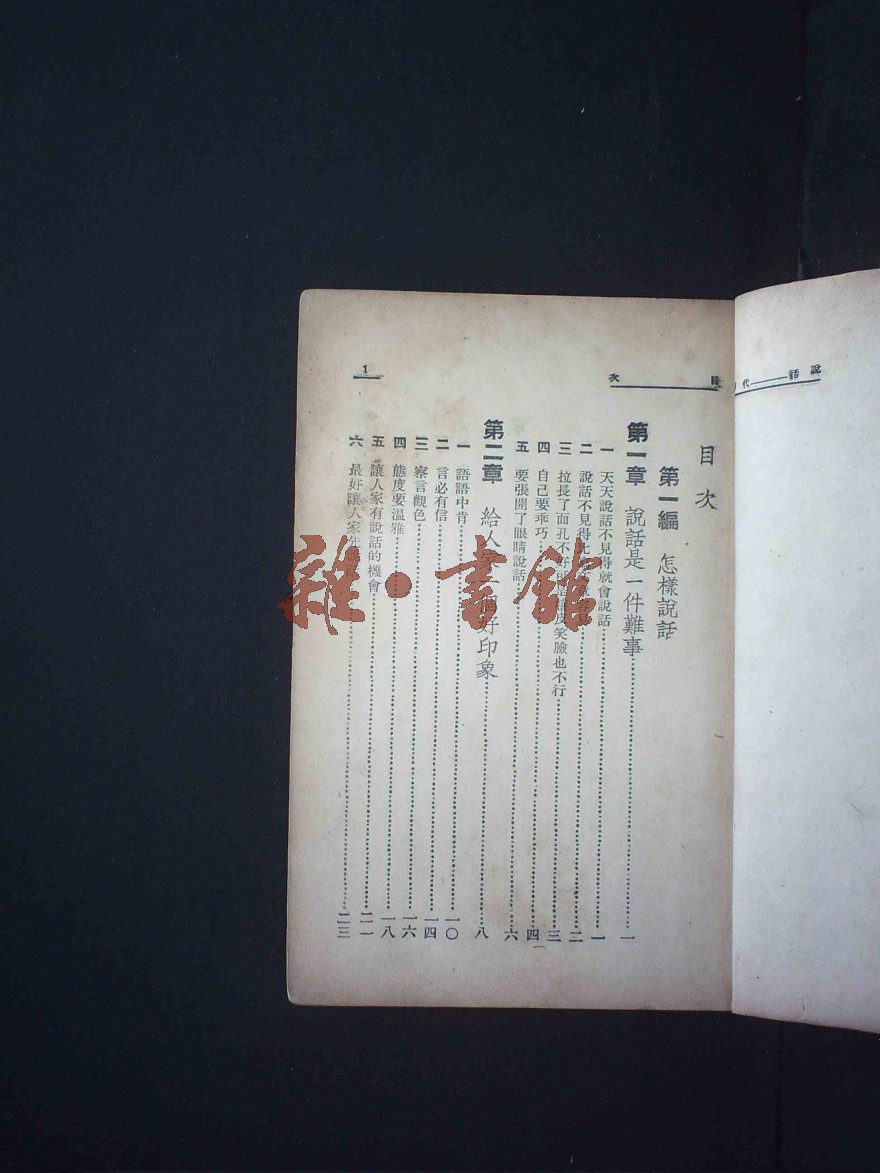 說話
代
目
次
1
目次
第一編 怎樣說話
第一章 說話是一件難事……一
一 天天說話不見得就會說話……一
二 說話不見得比……二
三 拉長了面孔不好……皮笑臉也不行……三
四 自己要乖巧……四
五 要張開了眼睛說話……六
第二章 給人家一個好印象……八
一 語語中肯……一〇
二 言必有信……一四
三 察言觀色……一六
四 態度要溫雅……一八
五 讓人家有說話的機會……二一
六 最好讓人家先……二三
雜·書館